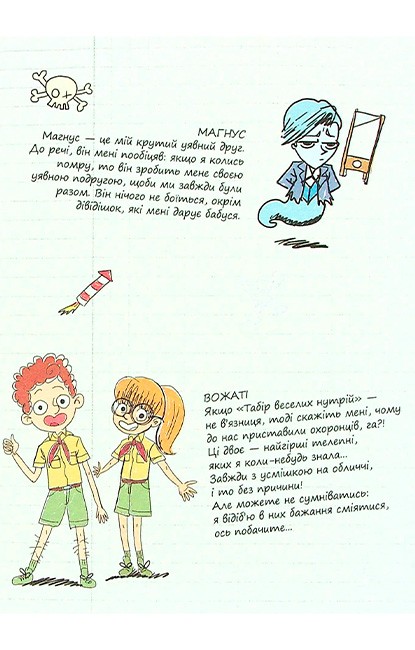 МАГНУС
Магнус — це мій крутий уявний друг.
До речі, він мені пообіцяв: якщо я колись
помру, то він зробить мене своєю
уявною подругою, щоби ми завжди були
разом. Він нічого не боїться, окрім
дівідішок, які мені дарує бабуся.
ВОЖАТІ
Якщо «Табір веселих нутрій» —
не в'язниця, тоді скажіть мені, чому
до нас приставили охоронців, га?!
Ці двоє — найгірші телепні,
яких я коли-небудь знала...
Завжди з усмішкою на обличчі,
і то без причини!
Але можете не сумніватись:
я відіб'ю в них бажання сміятися,
ось побачите...